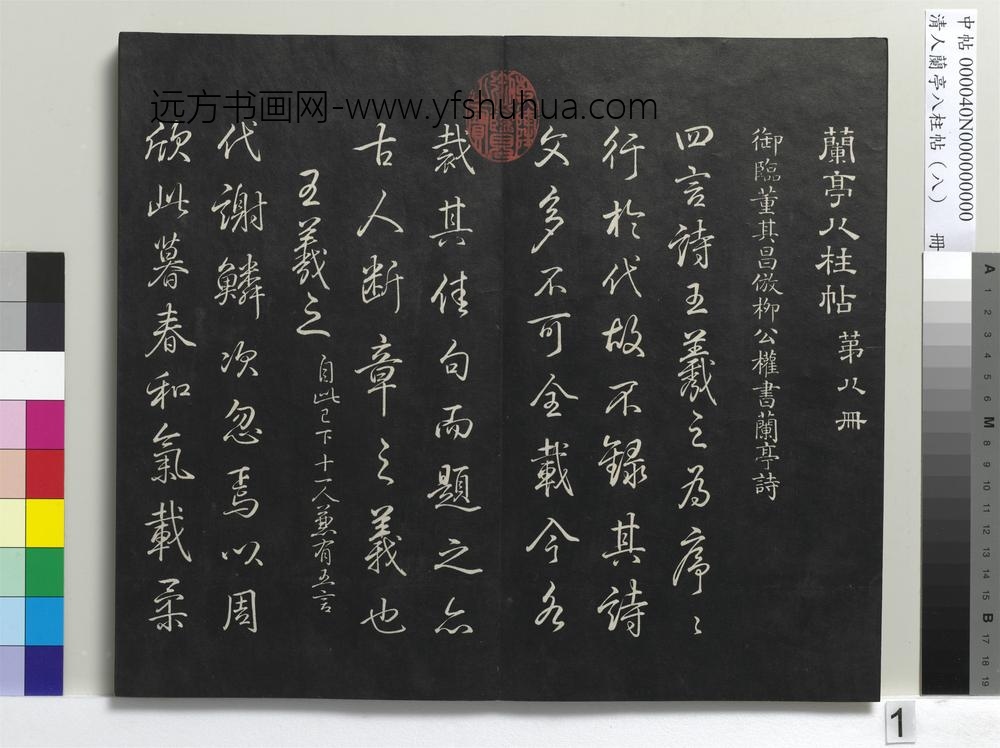 蘭亭八柱帖 第八冊
御臨董其昌倣柳公權書蘭亭詩
四言詩王羲之為序〻
行於代故不錄其詩
文多不可全載今各
裁其佳句而題之亦
古人斷章之義也
王羲之 自此已下十一人兼有五言
代謝鱗次忽焉以周
欣此暮春和氣載柔
远方书画网-www.yfshuhua.com
中帖 000040N000000000
清人蘭亭八柱帖（八） 冊
A 1 2 3 4 5 6 M 8 9 10 11 12 13 14 15 B 17 18 19
1